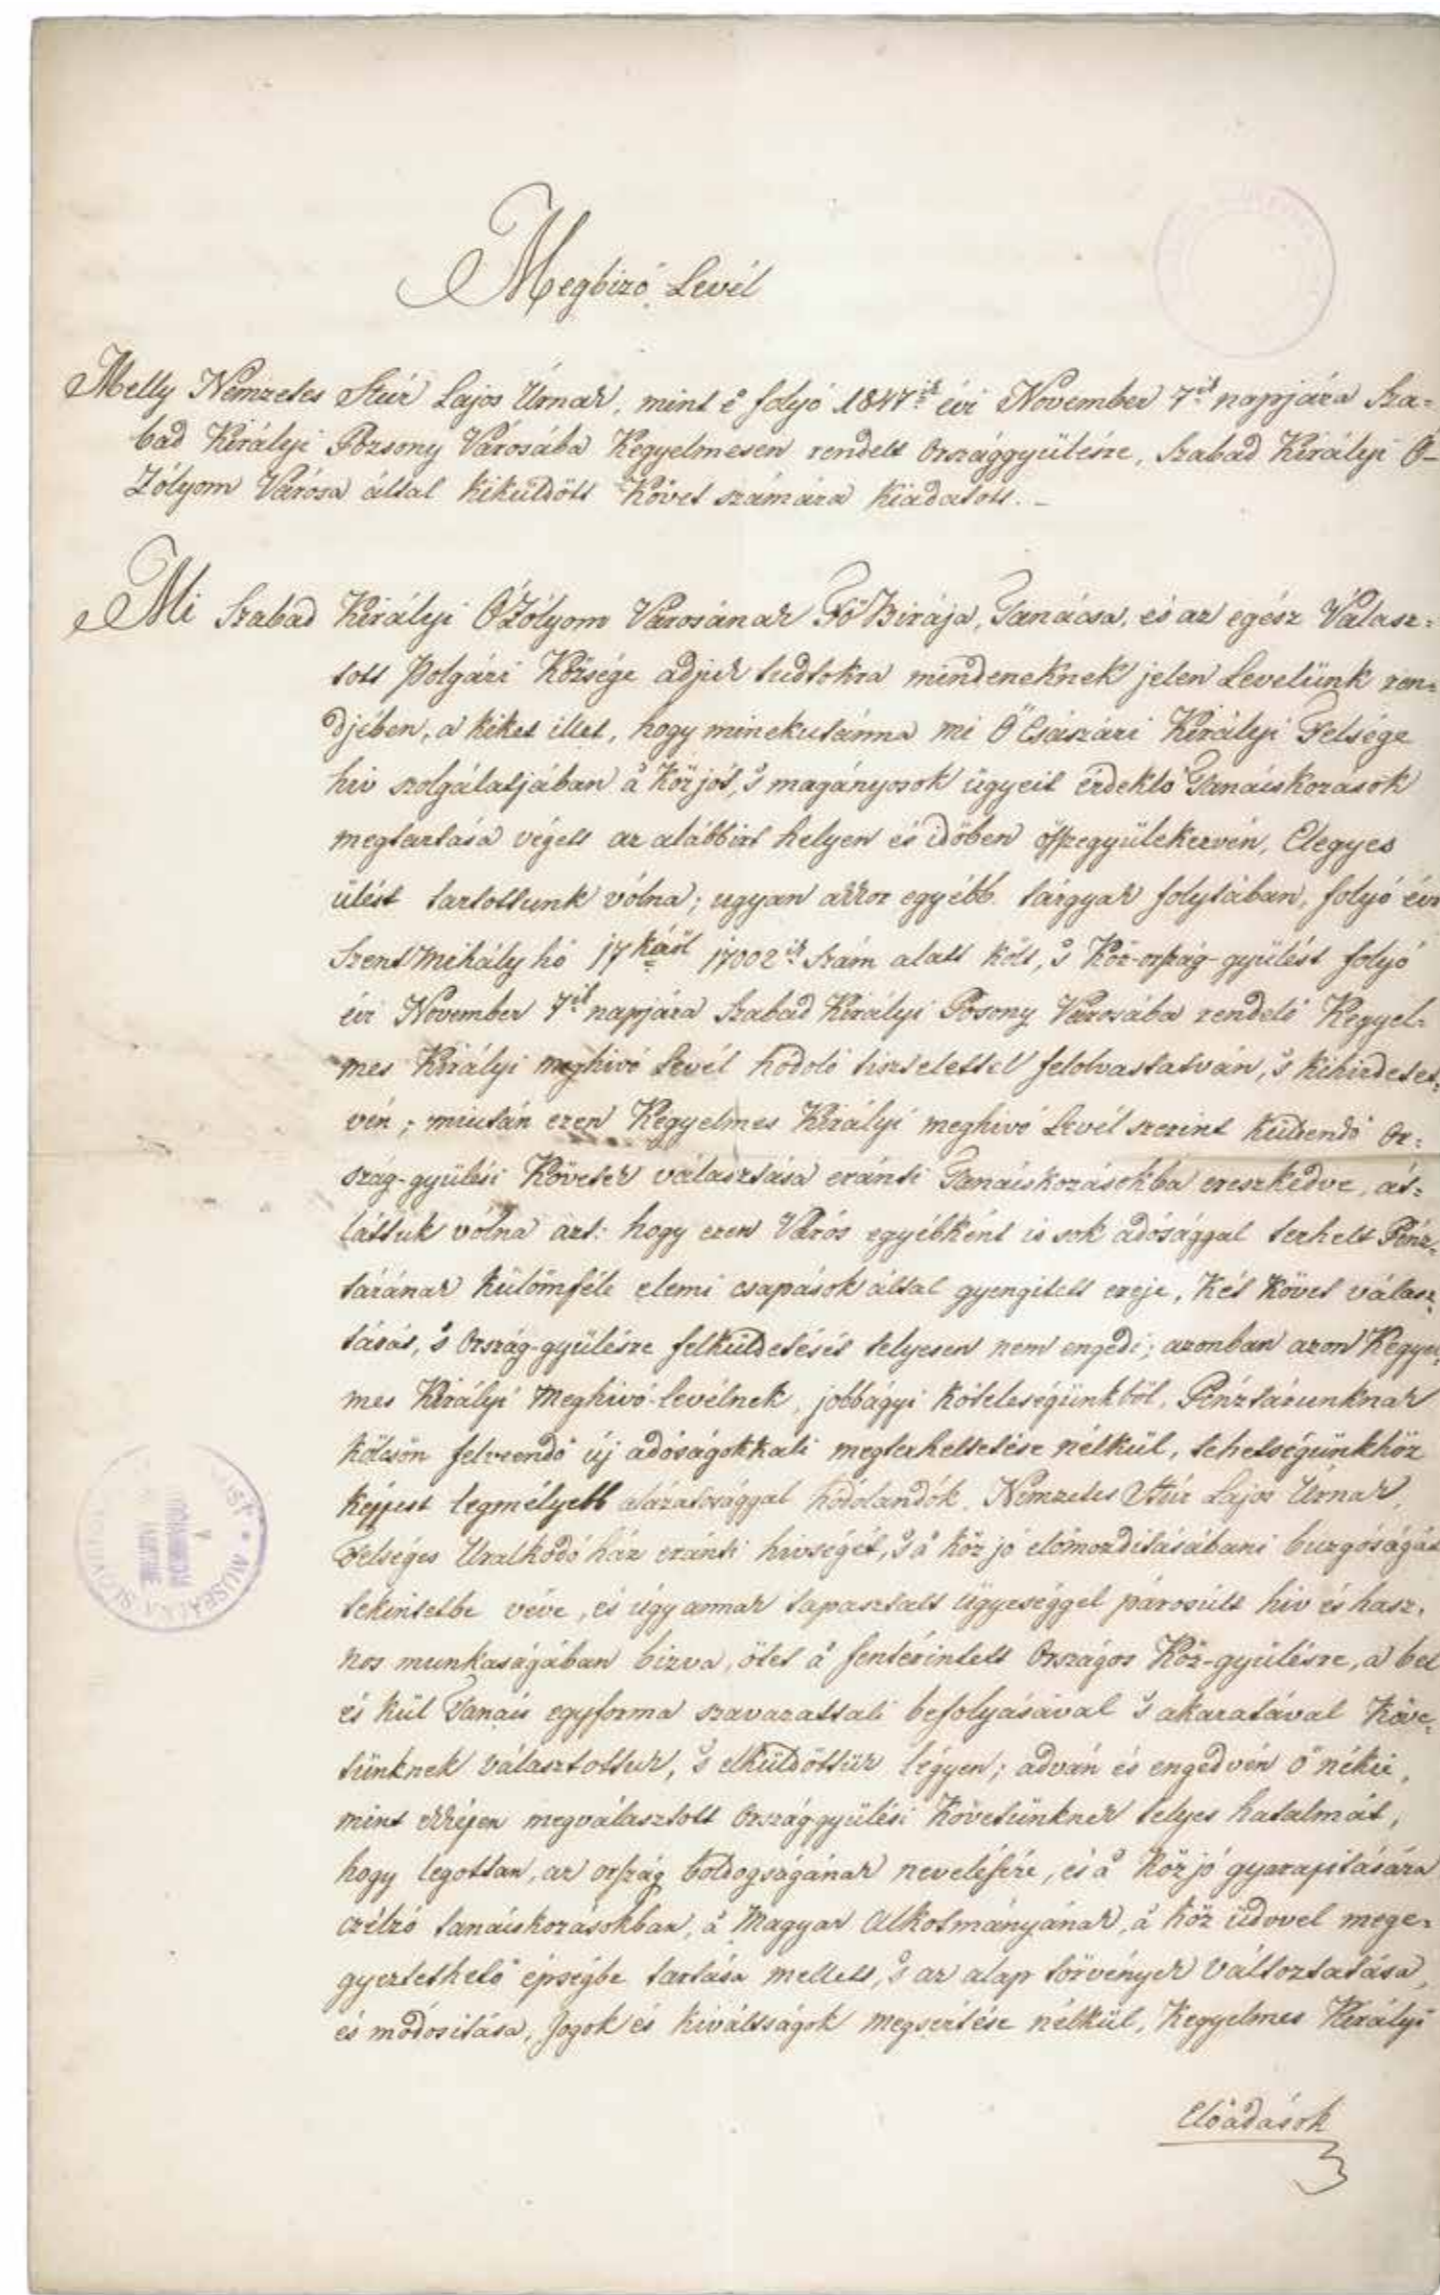 Megbizó Levél
Melly Nemzetes Stúr Lajos Úrnak, mint é folyó 1847ik évi November 7ik napjára Sza=
bad Királyi Pozsony Városába Kegyelmesen rendelt Országgyülésre, Szabad Királyi Ó-
Zólyom Városa által kiküldött Követ számára kiadatott. –
Mi Szabad Királyi ÓZólyom Városának Fő Birája, Tanácsa, és az egész Válasz=
tott Polgári Községe adjuk tudtokra mindeneknek jelen Levelünk ren=
djében, a kiket illet, hogy minekutánna mi Ő Császári Királyi Felsége
hiv szolgálatjában a' Köz jót, 's magányosok ügyeit érdeklő Tanácskozások
megtartása végett az alábbirt helyen és időben öszvegyülekezvén, Elegyes
ülést tartottunk vólna; ugyan akkor egyébb tárgyak folytában, folyó évi
Szent Mihály hó 17káról 17002ik Szám alatt költ, 's Köz-ország-gyülést folyó
évi November 7ik napjára Szabad Királyi Posony Városába rendelő Kegyel=
mes Királyi meghivó Levél hódoló tisztelettel felolvastatván, 's kihirdetet=
vén; miután ezen Kegyelmes Királyi meghivó Levél szerint küldendő Or=
szág-gyülési Követek választása eránti Tanácskozásokba ereszkedve, át=
láttuk vólna azt: hogy ezen Város egyébként is sok adósággal terhelt Pénz=
tárának külömféle elemi csapások által gyengitett ereje, Két Követ válasz=
tását, 's Ország-gyülésre felküldetését telyesen nem engedi; azonban azon Kegyel=
mes Királyi Meghivó-levélnek, jobbágyi köteleségünkből, Pénztárunknak
kölcsön felveendő új adóságokkali megterheltetése nélkül, tehetségünkhöz
képpest legmélyebb alázatosággal hódolandók, Nemzetes Stúr Lajos Úrnak
Felséges Uralkodó ház eránti hivségét, 's a' köz jó előmozditásábani buzgóságát
tekintetbe véve, és úgy annak tapasztalt ügyeséggel párosúlt hiv és hasz=
nos munkaságában bizva, ötet a' fentérintett Országos Köz-gyülésre, a bel
és kül Tanács egyforma szavazattali befolyásával 's akaratával Köve=
tünknek választottuk, 's elküldöttük légyen; adván és engedvén ő nékie,
mint ekképen megválasztott Országgyülési Követünknek telyes hatalmát,
hogy legottan, az ország boldogságának nevelésére, és a' köz jó gyarapitására
czélzó tanácskozásokban, a' Magyar Alkotmányának, a' köz üdvvel mege=
gyeztethető épségbe tartása mellett, 's az alap törvények változtatása,
és módositása, Jogok és kiváltságok megsértése nélkül, Kegyelmes Királyi
Előadások